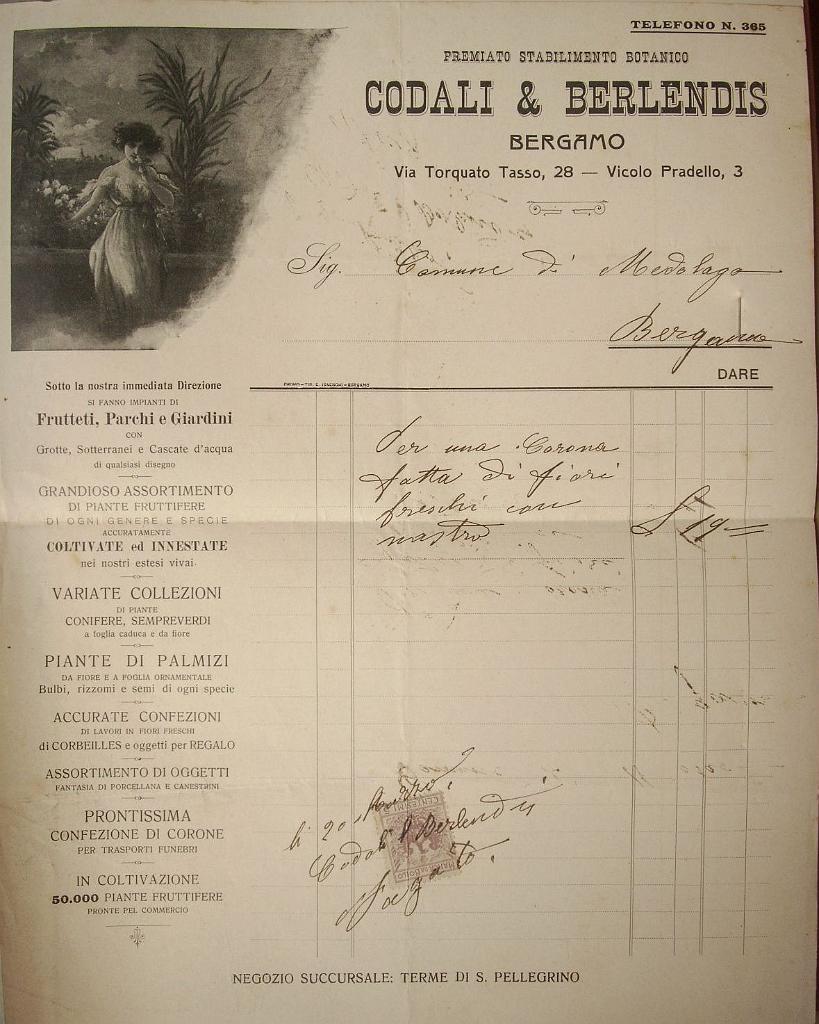 TELEFONO N. 365
PREMIATO STABILIMENTO BOTANICO
CODALI & BERLENDIS
BERGAMO
Via Torquato Tasso, 28 — Vicolo Pradello, 3
Sig. Comune di Medolago
Bergamo
DARE
Sotto la nostra immediata Direzione
SI FANNO IMPIANTI DI
Frutteti, Parchi e Giardini
CON
Grotte, Sotterranei e Cascate d'acqua
di qualsiasi disegno
GRANDIOSO ASSORTIMENTO
DI PIANTE FRUTTIFERE
DI OGNI GENERE E SPECIE
ACCURATAMENTE
COLTIVATE ed INNESTATE
nei nostri estesi vivai
VARIATE COLLEZIONI
DI PIANTE
CONIFERE, SEMPREVERDI
a foglia caduca e da fiore
PIANTE DI PALMIZI
DA FIORE E A FOGLIA ORNAMENTALE
Bulbi, rizzomi e semi di ogni specie
ACCURATE CONFEZIONI
DI LAVORI IN FIORI FRESCHI
di CORBEILLES e oggetti per REGALO
ASSORTIMENTO DI OGGETTI
FANTASIA DI PORCELLANA E CANESTRINI
PRONTISSIMA
CONFEZIONE DI CORONE
PER TRASPORTI FUNEBRI
IN COLTIVAZIONE
50.000 PIANTE FRUTTIFERE
PRONTE PEL COMMERCIO
Per una Corona
fatta di fiori
freschi con
nastro
£ 19 =
li 20
Codali & Berlendis
Pagato.
CENTESIMI
MARCA DA BOLLO
NEGOZIO SUCCURSALE: TERME DI S. PELLEGRINO